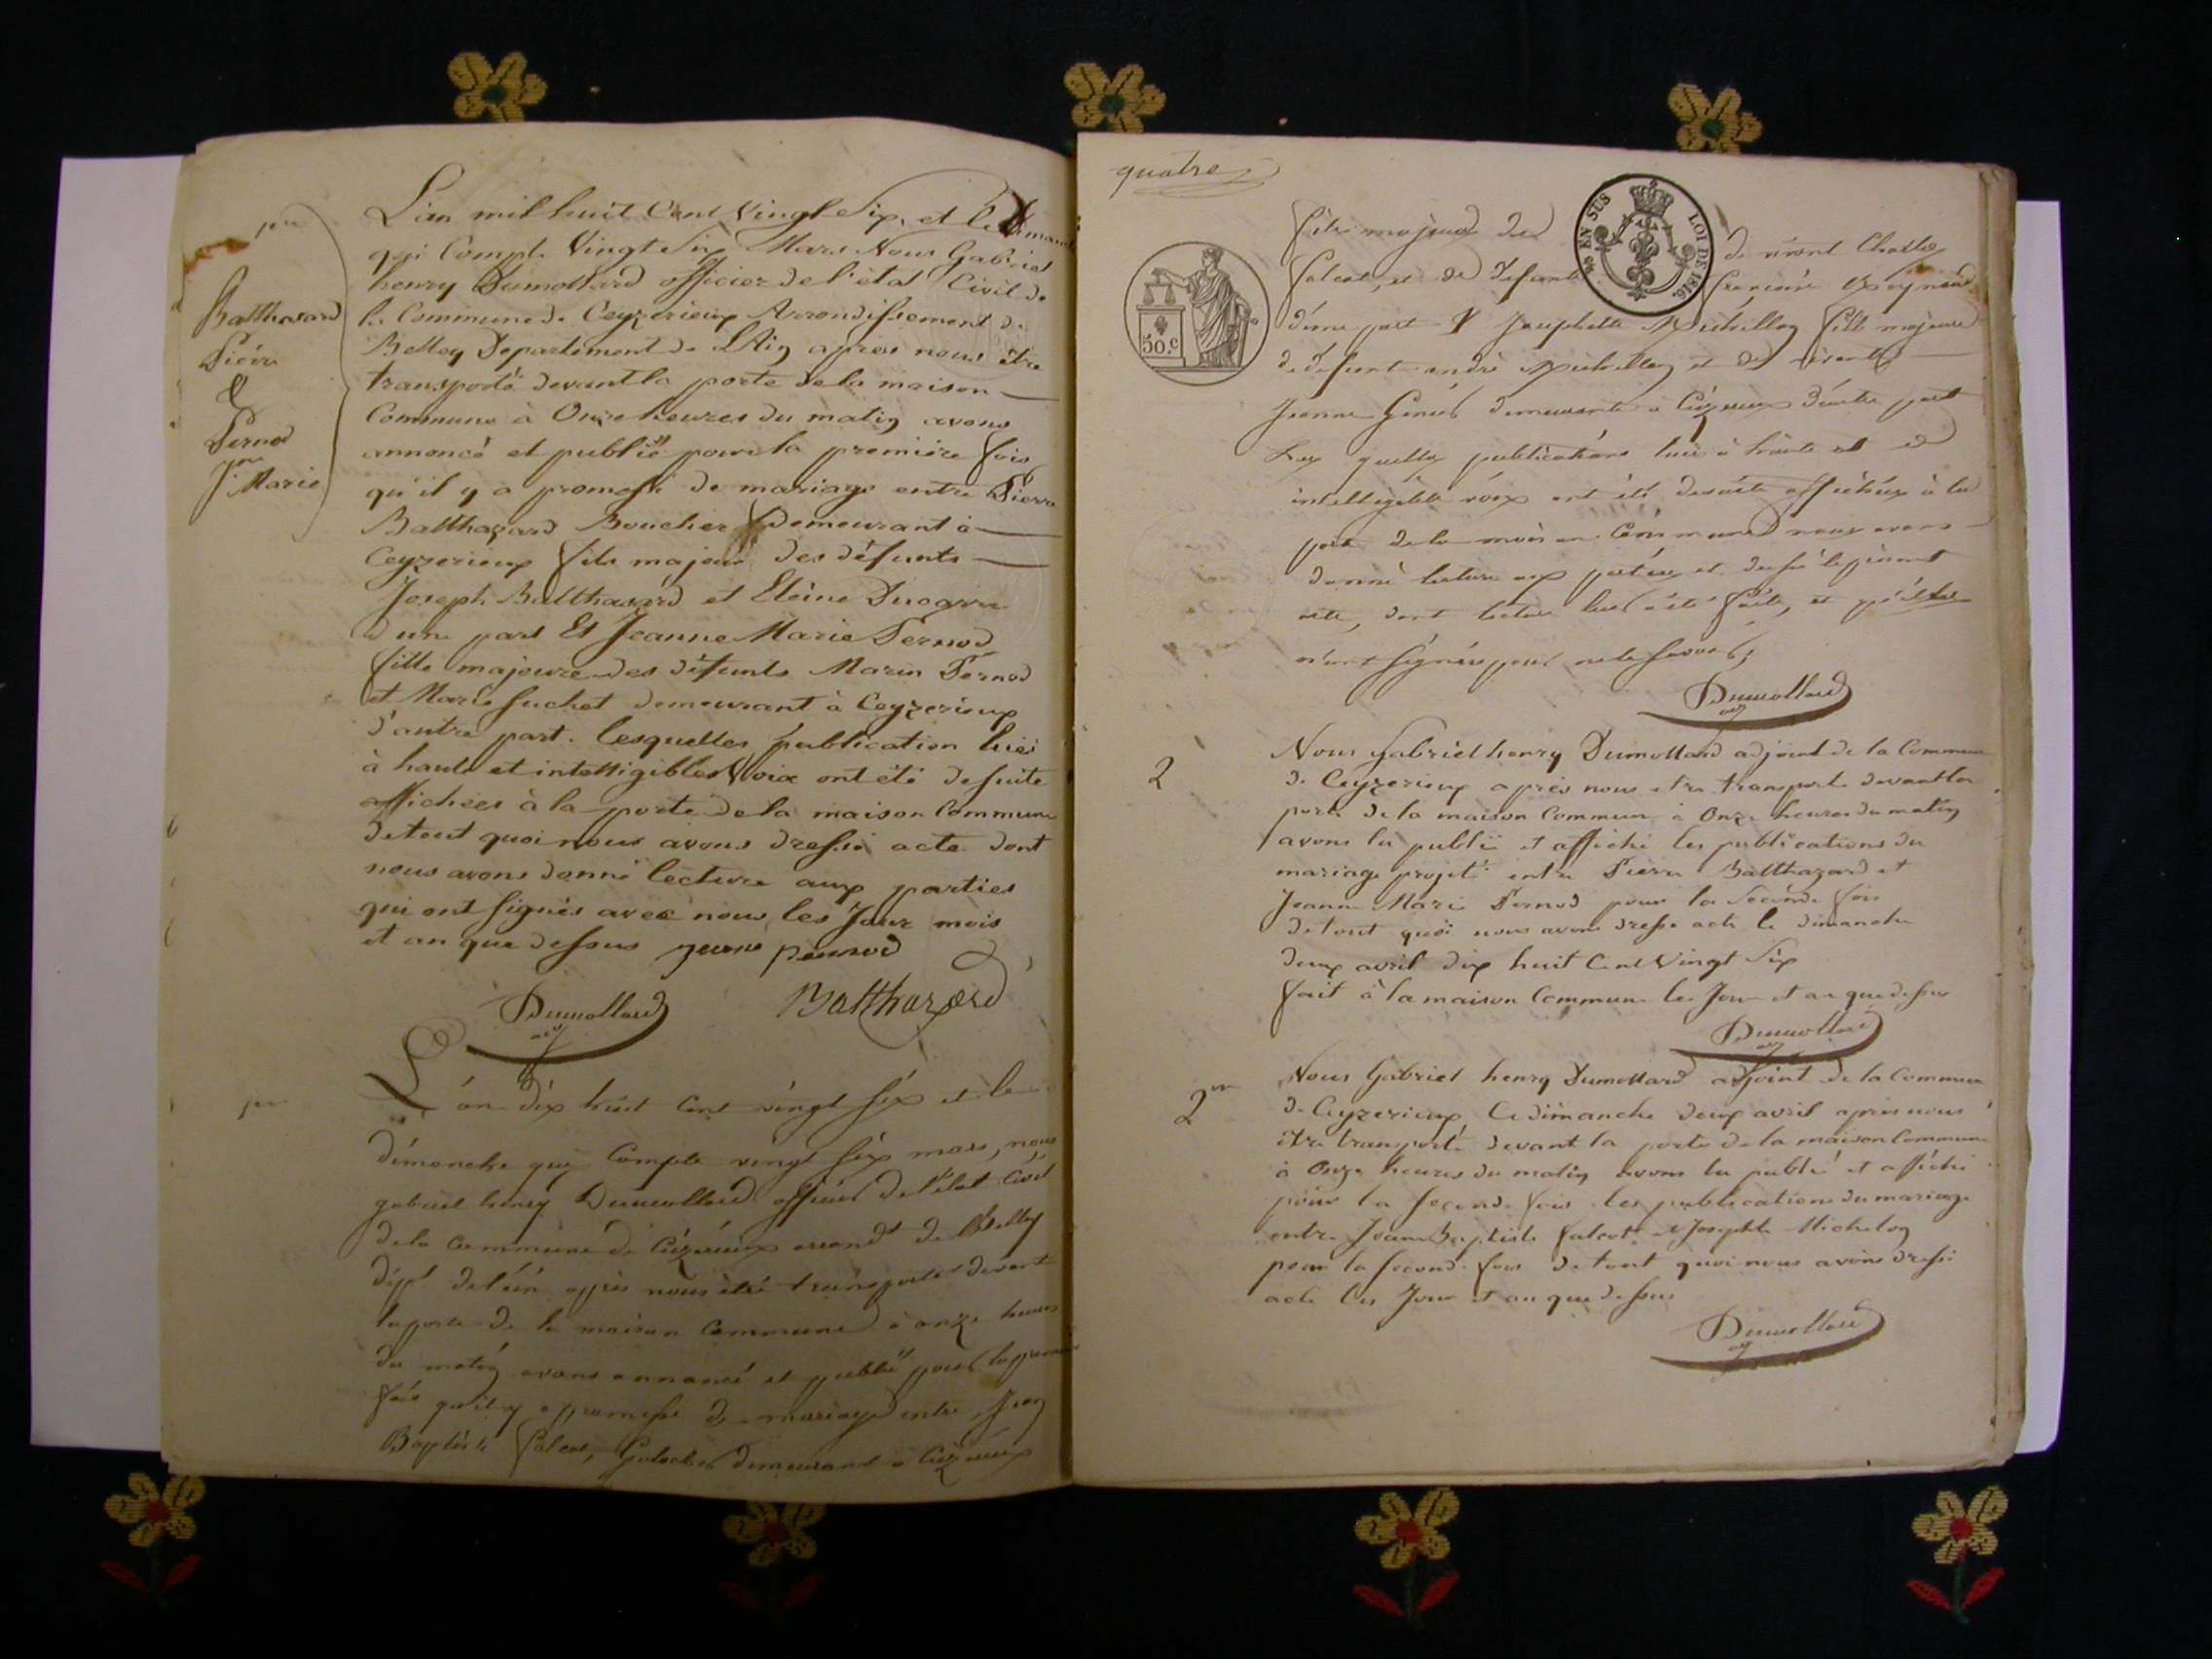 pre
Balthasard
Piérre
&
Pernod
Jne Marie
L'an mil huit Cent Vingt Six, et le Dimanche
qui Compte Vingt Six Mars Nous Gabriel
henry Dumollard officier de l'état Civil de
la Commune de Ceyzerieux Arrondissement de
Belley Departement de L'Ain apres nous être
transporté devant la porte de la maison
Commune à Onze heures du matin avons
annoncé et publié pour la premiére fois
qu'il y a promesse de mariage entre Piérre
Balthazard Boucher Demeurant à
Ceyzerieux fils majeur des défunts
Joseph Balthasard et Eléine
d'une part Et Jeanne Marie Pernod
fille majeure des défunts Marin Pernod
et Marie Suchet demeurant à Ceyzerieux
d'autre part. lesquelles publication lues
à haute et intelligibles Voix ont été de suite
affichées à la porte de la maison Commune
de tout quoi nous avons dressé acte dont
nous avons donné lecture aux parties
qui ont signés avec nous les Jour mois
et an que dessus jeane pernod
Dumollard Balthazard
L'an dix huit cent vingt six et le
dimanche qui Compte vingt six mars, nous
gabriel henry Dumollard officier de l'état Civil
de la commune de Ceÿzerieux arrondt de Belley
dépt de l'ain après nous être transporté devant
la porte de la maison Commune à onze heures
du matin avons annoncé et publié pour la premiere
fois qu'il y a promesse de mariage entre Jean
Baptiste falcot, demeurant à Ceÿzerieux
quatre
EN SUS LOI DE 1816.
50.c
fils majeur de de vivant Charles
falcot, et de defunte françoise
d'une part & Josephette Michellon fille majeure
de défunt andré Michellon et de vivante
Jeanne demeurante à Ceÿzerieux d'autre part
Les quelles publications lues à haute et
intelligible voix ont été de suite affichées à la
porte de la maison Commune nous avons
donné lecture aux parties et dressé le présent
acte, dont lecture leur a été faite, et
n'ont signées pour ne le savoir,
Dumollard
2
Nous Gabriel henry Dumollard adjoint de la Commune
de Ceyzerieux après nous etre transporté devant la
porte de la maison Commune à Onze heures du matin
avons lu publié et affiché les publications du
mariage projeté entre Pierre Balthazard et
Jeanne Marie Pernod pour la Seconde fois
de tout quoi nous avons dressé acte le dimanche
deux avril dix huit Cent Vingt Six
fait à la maison Commune les Jour et an que dessus
Dumollard
2
Nous Gabriel henry Dumollard adjoint de la Commune
de Ceyzerieux Ce dimanche deux avril après nous
être transporté devant la porte de la maison Commune
à Onze heures du matin avons lu publié et affiché
pour la seconde fois les publications du mariage
entre Jean Baptiste falcot & Josephte Michelon
pour la seconde fois de tout quoi nous avons dressé
acte les Jour et an que dessus
Dumollard